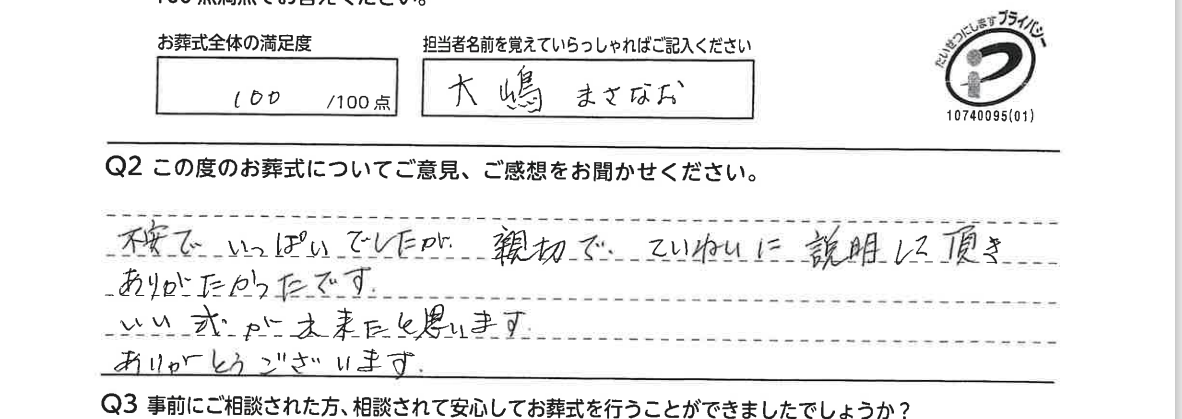 100点満点でお答えください。
お葬式全体の満足度
担当者名前を覚えていらっしゃればご記入ください
100 /100点
大嶋 まさなお
たいせつにします プライバシー
10740095(01)
Q2 この度のお葬式についてご意見、ご感想をお聞かせください。
不安で いっぱい でしたが、親切で、ていねいに 説明して頂き
ありがたかったです。
いい式が出来たと思います。
ありがとうございます。
Q3 事前にご相談された方、相談されて安心してお葬式を行うことができましたでしょうか？